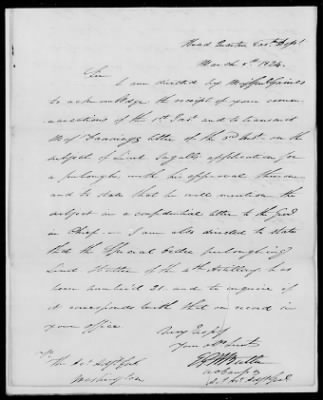 Head Quarters East. Dept
March 8th 1824.
Sir
I am directed by Maj Genl Gaines
to acknowledge the receipt of your commu-
nications of the 1st Inst and to transmit
Maj. Fannings letter of the 3rd Inst. on the
subject of Lieut application for
a furlough with his approval thereon
and to state that he will mention the
subject in a confidential letter to the Genl
in Chief. I am also directed to state
that the Special Order furloughing
Lieut of the 4th Artillery has
been numbered 21. and to enquire if
it corresponds with that on record in
your office.
Very Respy
Your Obt Servt
E G W Butler
The Adjt Genl
Washington